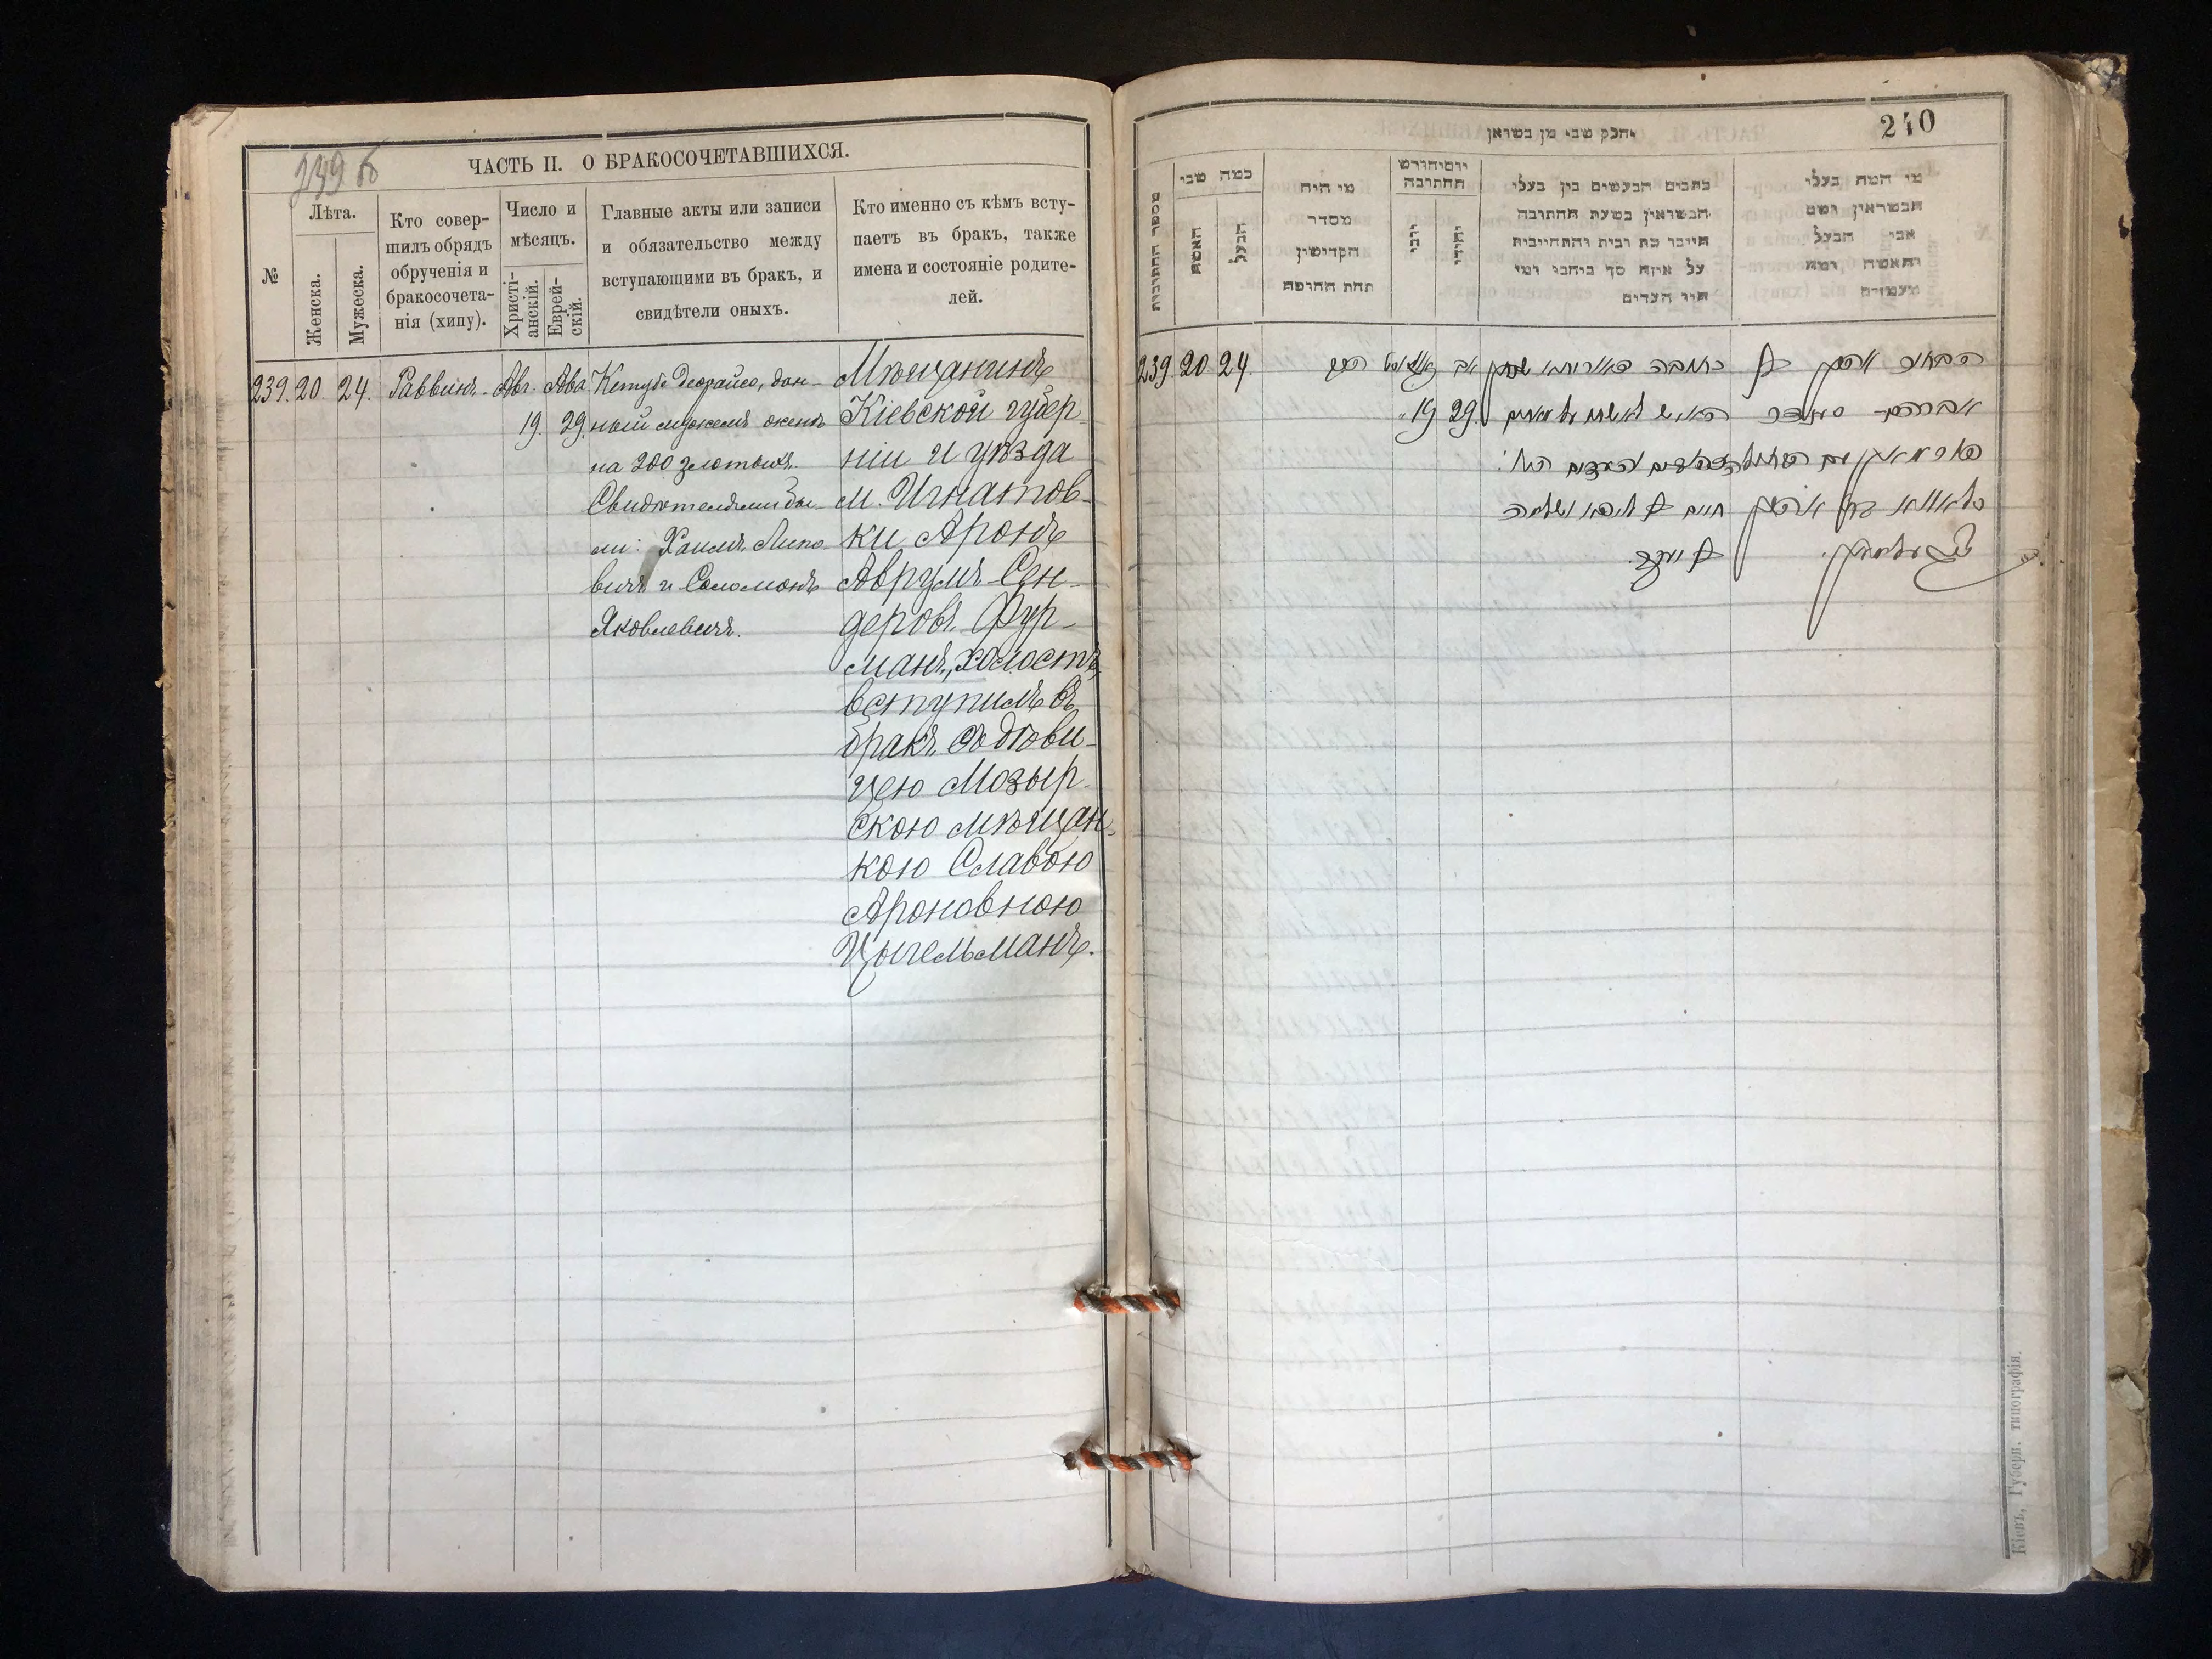 239 об
ЧАСТЬ II. О БРАКОСОЧЕТАВШИХСЯ.
№
Лѣта.
Женска.
Мужеска.
Кто совер-
шилъ обрядъ
обрученія и
бракосочета-
нія (хипу).
Число и
мѣсяцъ.
Христі-
анскій.
Еврей-
скій.
Главные акты или записи
и обязательство между
вступающими въ бракъ, и
свидѣтели оныхъ.
Кто именно съ кѣмъ всту-
паетъ въ бракъ, также
имена и состояніе родите-
лей.
239. 20. 24. Раввинъ. Авг. Ава
19. 29.
Кетубе деорайсо, дан-
ный мужемъ женѣ
на 200 злотыхъ.
Свидѣтелями бы-
ли: Хаимъ Липо
вичъ и Соломонъ
Яковлевичъ.
Мѣщанинъ
Кіевской губер-
ніи и уѣзда
м. Игнатов-
ки Аронъ
Аврумъ Сен-
деровъ Фур-
манъ, холостъ,
вступилъ въ
бракъ съ дѣви-
цею Мозыр-
скою мѣщан-
кою Славою
Ароновною
Цыгельманъ.
240
וחלק שני מן נשואין
מספר החתונות
כמה שני
האשה
הבעל
מי היה
מסדר
הקדישין
תחת החופה
יום וחודש
החתונה
נוצרי
יהודי
כתבים הנעשים בין בעלי
הנשואין בשעת החתונה
על איזה סך ביחבי ומי
היו העדים
מי המה בעלי
הנשואין ושם
אבי הבעל
והאשה ומה
מעמדם
239. 20. 24.
19 29.
הבחור אהרן בן
אברהם סענדר
כתובה דאורייתא
אב
Кіевъ, Губерн. типографія.